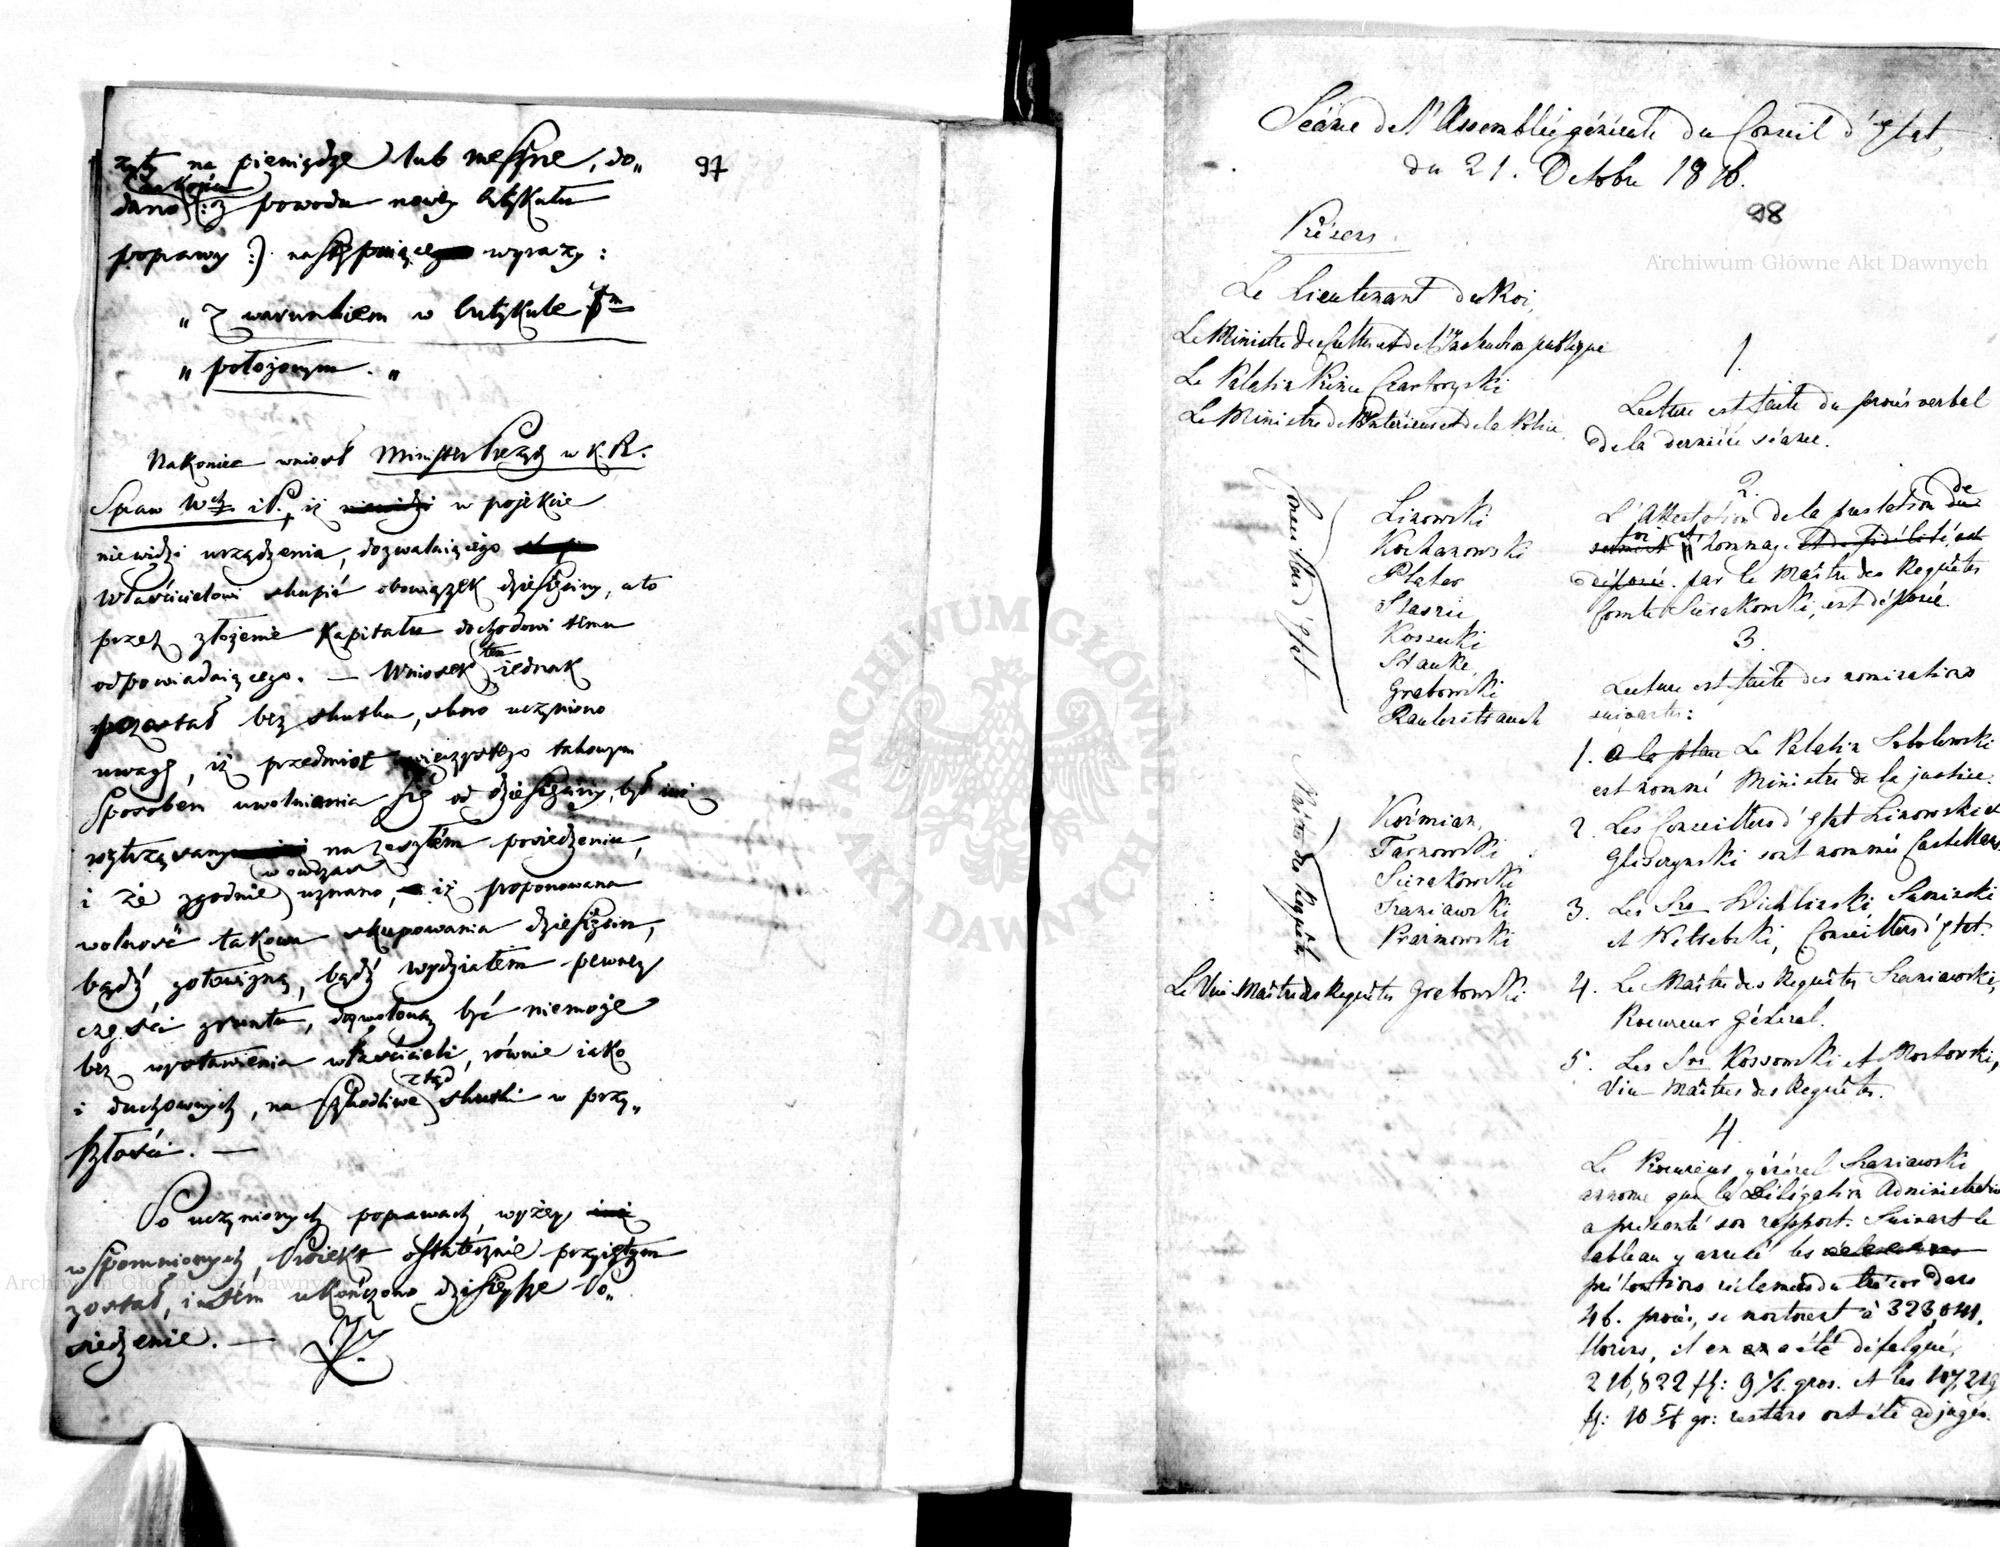 97
żyły na pieniądze lub messne, do„
na końcu
dano (: z powodu nowey Artykułu
poprawy :) następuiące wyrazy:
„ z warunkiem w Artykule
„ położonym. „
Nakoniec wniosł Minister Prezyd: w K. R.
Spraw W. i P., iż w projekcie
niewidzi urządzenia, dozwalaiącego
Właścicielowi skupić obowiązek dziesięciny, a to
przez złożenie Kapitału dochodowi temu
odpowiadaiącego. — Wniosek ten iednak
pozostał bez skutku, skoro uczyniono
uwagę, iż przedmiot wieczystego takowym
sposobem uwolnienia się od dziesięciny, był iuż
roztrząsany na zeszłem posiedzeniu,
i że zgodnie wówczas uznano, iż proponowana
wolność takowa skupowania dziesięcin,
bądź gotowizną, bądź wydziałem pewney
części gruntu, dozwoloną być niemoże
bez wystawienia właścicieli, równie iako
i duchownych, na szkodliwe ztąd skutki w przy„
szłości. —
Po uczynionych poprawach, wyżey
wspomnionych, Proiekt ostatecznie przyiętym
został, i tem ukończono dzisieysze Po„
siedzenie. —
Séance de l'Assemblée générale du Conseil d'Etat,
du 21. Octobre 1816.
98
Présens
Le Lieutenant du Roi,
Le Ministre des Cultes et de l'Instruction publique
Le Palatin Prince Czartoryski
Le Ministre de l'Intérieur et de la Police
Conseillers d'Etat
Linowski
Kochanowski
Plater
Staszic
Kossecki
Hauke
Grabowski
Rautenstrauch
Maitres des Requêtes
Koźmian,
Tarnowski
Sierakowski
Szaniawski
Prażmowski
Le Vice Maître des Requêtes Grabowski
1.
Lecture est faite du procès verbal
de la dernière séance.
2.
L'Attestation de la prestation de du
serment foi et hommage et de fidélité est
déposée par le Maître des Requêtes
Comte Sierakowski, est déposée.
3.
Lecture est faite des nominations
suivantes:
1. a la place Le Palatin Sobolewski
est nommé Ministre de la justice.
2. Les Conseillers d'Etat Linowski et
Gliszczynski sont nommés Castellans
3. Les Srs Wichlinski, Suminski
et Conseillers d'Etat.
4. Le Maître des Requêtes Szaniawski,
Procureur Général.
5. Les Srs Kossowski et Mostowski,
Vice-Maîtres des Requêtes.
4.
Le Procureur général Szaniawski
annonce que la Délégation Administrative
a présenté son rapport. Suivant le
tableau y annexé les
prétentions réclamées du trésor dans
46. procès, se montoient à 323,041,
florins, il en a été défalqué,
216,822 fl: 9 ½. gros. et les 107,219
fl: 10 gr: restans ont été adjugés.
Archiwum Główne Akt Dawnych
Archiwum Główne Akt Dawnych
ARCHIWUM GŁÓWNE
AKT DAWNYCH